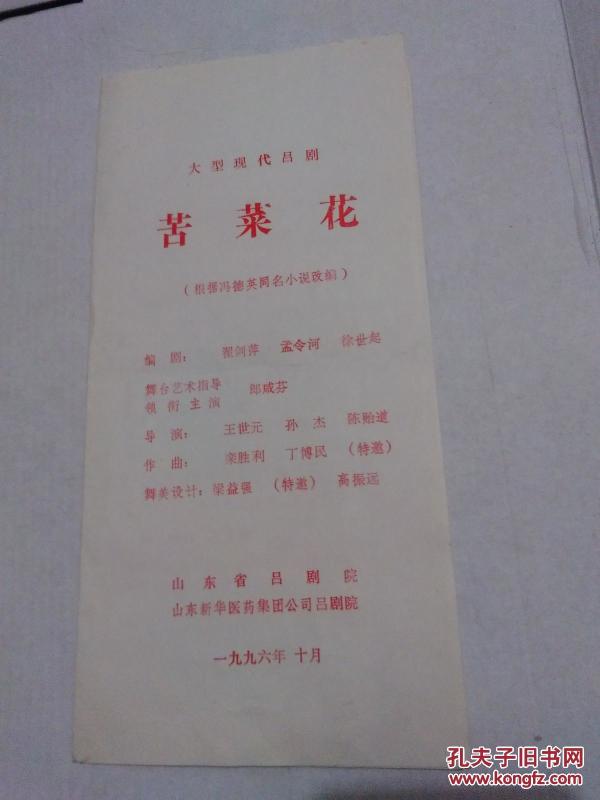 大型现代吕剧
苦菜花
(根据冯德英同名小说改编)
编剧: 翟剑萍 孟令河 徐世起
舞台艺术指导
领衔主演 郎咸芬
导演: 王世元 孙杰 陈贻道
作曲: 栾胜利 丁博民 (特邀)
舞美设计: 梁益强 (特邀) 高振远
山东省吕剧院
山东新华医药集团公司吕剧院
一九九六年 十月
孔夫子旧书网
www.kongfz.com